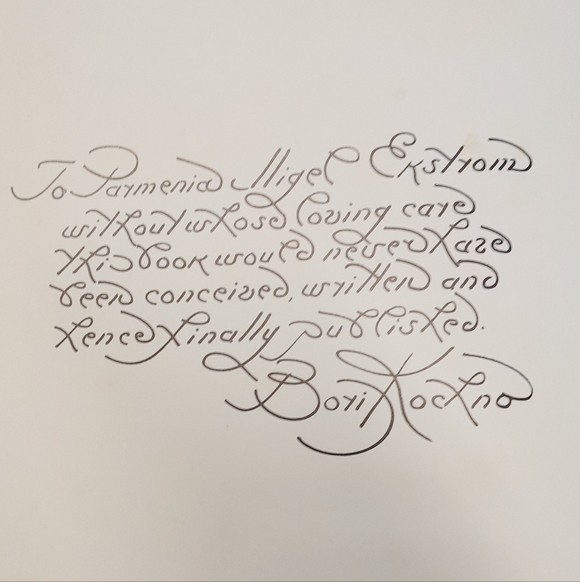 To Parmenia Migel Ekstrom
without whose loving care
this book would never have
been conceived, written and
hence finally published.
Boris Kochno